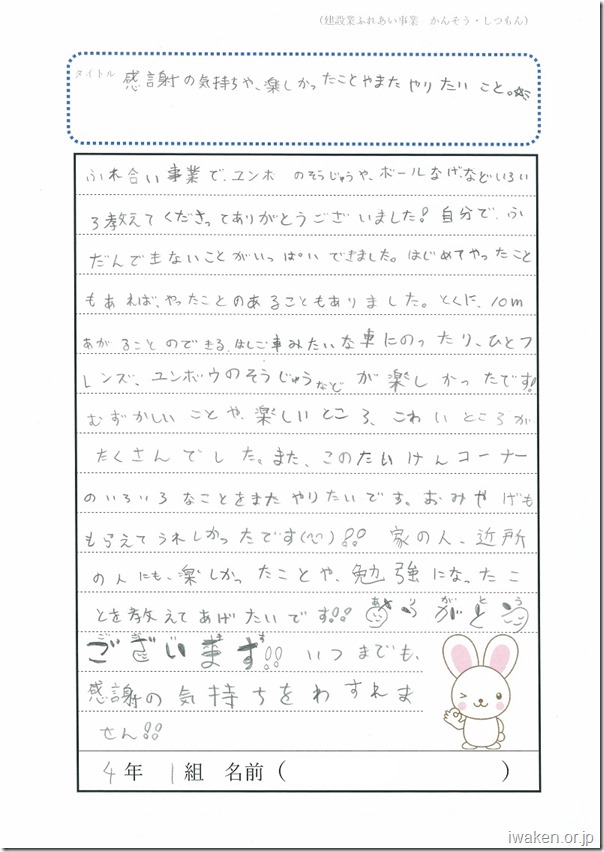 （建設業ふれあい事業　かんそう・しつもん）
タイトル 感謝の気持ちや、楽しかったことやまたやりたいこと。☆
ふれ合い事業で、ユンボのそうじゅうや、ボールなげ、などいろい
ろ教えてくださってありがとうございました! 自分で、ふ
だんできないことがいっぱいできました。はじめてやったこと
もあれば、やったことのあることもありました。とくに、10m
あがることのできる、はしご車みたいな車にのったり、ひとつ
レンズ、ユンボウのそうじゅうなどが楽しかったです!
むずかしいことや、楽しいところ、こわいところが
たくさんでした。また、このたいけんコーナー
のいろいろなことをまたやりたいです。おみやげも
もらえてうれしかったです(心)!! 家の人、近所
の人にも、楽しかったことや、勉強になったこ
とを教えてあげたいです!! ありがとう
ございます!! いつまでも、
感謝の気持ちをわすれま
せん!!
4年 1組 名前（　　　）
iwaken.or.jp